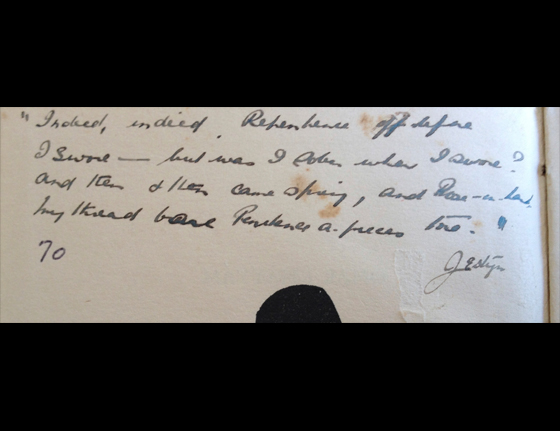 "Indeed, indeed, Repentance oft before
I swore — but was I sober when I swore?
and then & then came spring, and Rose-in-hand
my thread bare Penitence a-pieces tore."
70
JEstyn